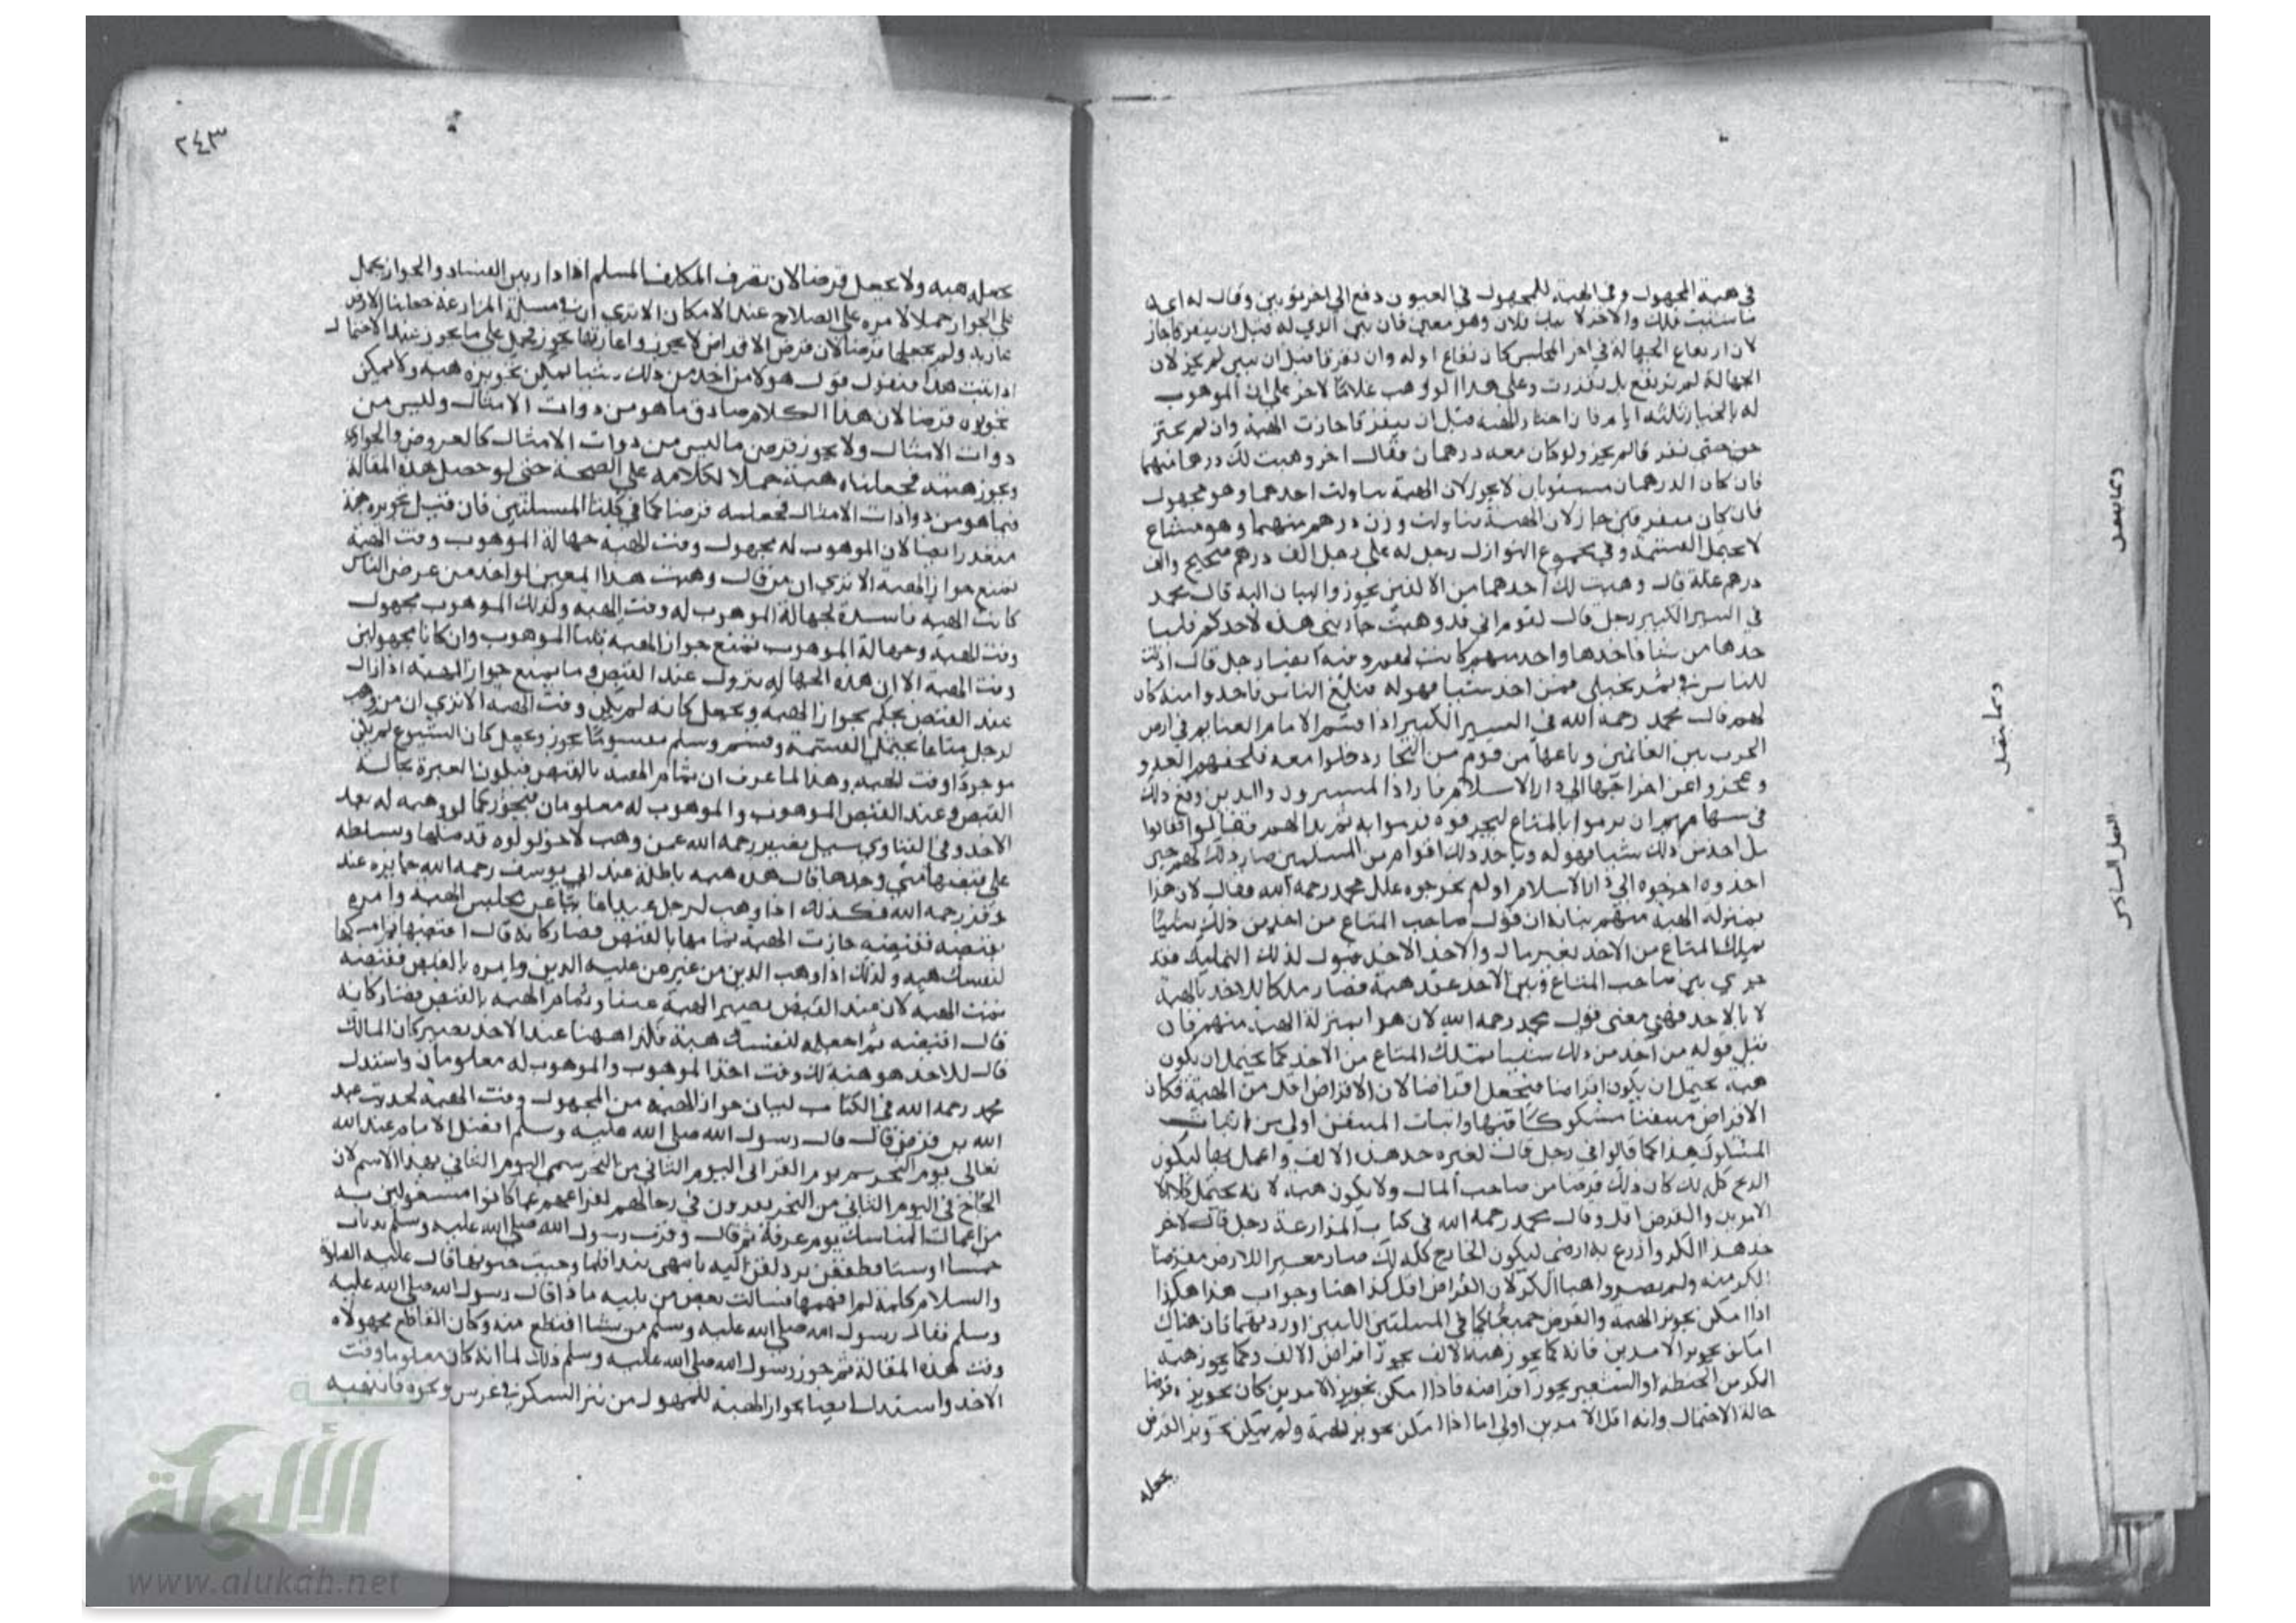 في هبة المجهول وفي الهبة للمجهول في العيون دفع الى اخر ثوبين وقال له ايهما
شئت فلك والاخر لابنك فلان وهو معين فان بين الذي له قبل ان يتفرقا جاز
لان ارتفاع الجهالة في اخر المجلس كان تفاع اوله وان تفرقا قبل ان يبين لم يجز لان
الجهالة لم ترتفع بل تقررت وعلى هذا لو وهب غلاما لاخر على ان الموهوب
له بالخيار ثلثة ايام فان اختار الهبة قبل ان يتفرقا جازت الهبة وان لم يختر
حتى تفرقا لم يجز ولو كان معه درهمان فقال اخر وهبت لك درهما منهما
فان كان الدرهمان مستويان لا يجوز لان الهبة تناولت احدهما وهو مجهول
فان كان متفرقين جاز لان الهبة تناولت وزن درهم منهما وهو مشاع
لا يحتمل القسمة وفي مجموع النوازل رجل له على رجل الف درهم صحيح والف
درهم غلة قال وهبت لك احدهما من الالفين يجوز والبيان اليه قال محمد
في السير الكبير رجل قال لقوم اني قد وهبت جاريتي هذه لاحدكم فلياخذها
من شا فاخذها واحد منهم كانت له وفيه ايضا رجل قال اذنت
للناس في ثمر نخيلي فمن اخذ شيا فهو له فبلغ الناس فاخذوا منه كان
لهم قال محمد رحمه الله في السير الكبير اذا قسم الامام الغنايم في ارض
الحرب بين الغانمين وباعها من قوم من التجار دخلوا معه فلحقهم العدو
وعجزوا عن اخراجها الى دار الاسلام فاراد المشترون والذين وقع ذلك
في سهامهم ان يرموا بالمتاع ليحرقوه فرموا به ثم بدا لهم فقالوا
من اخذ من ذلك شيا فهو له وياخذ ذلك اقوام من المسلمين صار ذلك لهم حين
اخذوه اخرجوه الى دار الاسلام او لم يخرجوه علل محمد رحمه الله فقال لان هذا
بمنزلة الهبة منهم بيانه ان قول صاحب المتاع من اخذ من ذلك شيا
تمليك المتاع من الاخذ بغير مال والاخذ الاخذ قبول لذلك التمليك فقد
جرى بين صاحب المتاع وبين الاخذ عقد هبة فصار ملكا للاخذ بالهبة
لا بالاخذ فهذي معنى قول محمد رحمه الله لان هذا بمنزلة الهبة منهم فان
قيل قوله من اخذ من ذلك شيا تمليك المتاع من الاخذ كما يحتمل ان يكون
هبة يحتمل ان يكون اقراضا فيجعل اقراضا لان الاقراض اقل من الهبة فكان
الاقراض متيقنا مشكوكا فيها واثبات المتيقن اولى من اثبات
المشكوك هذا كما قالوا في رجل قال لغيره خذ هذا الالف واعمل بها ليكون
الربح كله لك كان ذلك قرضا من صاحب المال ولا يكون هبة لانه يحتمل كلا
الامرين والقرض اقل وقال محمد رحمه الله في كتاب المزارعة رجل قال لاخر
خذ هذا الكر وازرع به ارضي ليكون الخارج كله لك صار معيرا للارض مقرضا
الكر منه ولم يصر واهبا الكر لان القراض اقل كذا هنا وجواب هذا هكذا
اذا امكن تجويز الهبة والقرض جميعا كما في المسلتين اللتين اوردتهما فان هناك
امكن تجويز الامرين فانه كما يجوز هبة الالف يجوز اقراض الالف وكما يجوز هبة
الكر من الحنطة او الشعير يجوز اقراضه فاذا امكن تجويز الامرين كان تجويزه قرضا
حالة الاحتمال وانه اقل الامرين اولى اما اذا امكن تجويز الهبة ولم يمكن تجويز القرض
يجعله
وكما ينقل
وكما ينعل
الفصل السادس
٢٤٣
يجعله هبة ولا يجعل قرضا لان تصرف المكلف المسلم اذا دار بين الفساد والجواز يحمل
على الجواز حملا لامره على الصلاح عند الامكان الا ترى ان في مسلة المزارعة جعلنا الارض
عارية ولم نجعلها قرضا لان قرض الاراض لا يجوز واعارتها يجوز فحمل على ما يجوز عند الاحتمال
اذا ثبت هذا فنقول قول هولا من اخذ من ذلك شيا يمكن تجويزه هبة ولا يمكن
تجويزه قرضا لان هذا الكلام صادق ما هو من ذوات الامثال وليس من
ذوات الامثال ولا يجوز قرض ما ليس من ذوات الامثال كالعروض والجوار
ويجوز هبته فجعلناه هبة حملا لكلامه على الصحة حتى لو حصل هذه المقالة
فيما هو من ذوات الامثال فجعلته قرضا كما في كلتا المسلتين فان قيل تجويزه هبة
متعذر ايضا لان الموهوب له مجهول وقت الهبة جهالة الموهوب وقت الهبة
تمنع جواز الهبة الا ترى ان من قال وهبت هذا المعين لواحد من عرض الناس
كانت الهبة فاسدة لجهالة الموهوب له وقت الهبة وكذلك الموهوب مجهول
وقت الهبة وجهالة الموهوب تمنع جواز الهبة قلنا الموهوب وان كانا مجهولين
وقت الهبة الا ان هذه الجهالة تزول عند القبض وما يمنع جواز الهبة اذا زال
عند القبض يحكم بجواز الهبة ويجعل كانه لم يكن وقت الهبة الا ترى ان من وهب
لرجل متاعا يحتمل القسمة وقسم وسلم مقسوما يجوز ويجعل كان الشيوع لم يكن
موجودا وقت الهبة وهذا لما عرف ان تمام الهبة بالقبض فيكون العبرة لحالة
القبض وعند القبض الموهوب والموهوب له معلومان فيجوز كما لو وهبه له بعد
الاخذ وفي الفتاوي سيل نصير رحمه الله عمن وهب لاخر لولوه قد ضلها وسلطه
على قبضها متى وجدها قال هذه هبة باطلة عند ابي يوسف رحمه الله جايزه عند
زفر رحمه الله فكذلك اذا وهب لرجل عبدا غايبا عن مجلس الهبة وامره
بقبضه فقبضه جازت الهبة تمامها بالقبض فصار كانه قال اقبضها ثم امسكها
لنفسك هبة وكذلك اذا وهب الدين من غير من عليه الدين وامره بالقبض فقبضه
تمت الهبة لان عند القبض يصير الهبة عينا وتمام الهبة بالقبض فصار كانه
قال اقبضه ثم اجعله لنفسك هبة فكذا ههنا عند الاخذ يصير كان المالك
قال للاخذ هو هبة لك وقت اخذ الموهوب والموهوب له معلومان واستدل
محمد رحمه الله في الكتاب لبيان جواز الهبة من المجهول وقت الهبة بحديث عبد
الله بن قرط قال قال رسول الله صلى الله عليه وسلم افضل الايام عند الله
تعالى يوم النحر ثم يوم القر اي اليوم الثاني من النحر سمي اليوم الثاني بهذا الاسم لان
الحاج في اليوم الثاني من النحر يقرون في رحالهم لفراغهم عما كانوا مشغولين به
من اعمال المناسك يوم عرفة ثم قال وقرب رسول الله صلى الله عليه وسلم بدنات
خمسا او ستا فطفقن يزدلفن اليه بايتهن يبدا فلما وجبت جنوبها قال عليه الصلوة
والسلام كلمة لم افهمها فسالت بعض من يليه ماذا قال رسول الله صلى الله عليه
وسلم فقال رسول الله صلى الله عليه وسلم من شا اقتطع منه وكان القاطع مجهولا
وقت هذه المقالة ثم جوز رسول الله صلى الله عليه وسلم ذلك لما انه كان معلوما وقت
الاخذ واستدل ايضا بجواز الهبة للمجهول من نثر السكر في عرس ونحوه فانتهبه
الألوكة
www.alukah.net